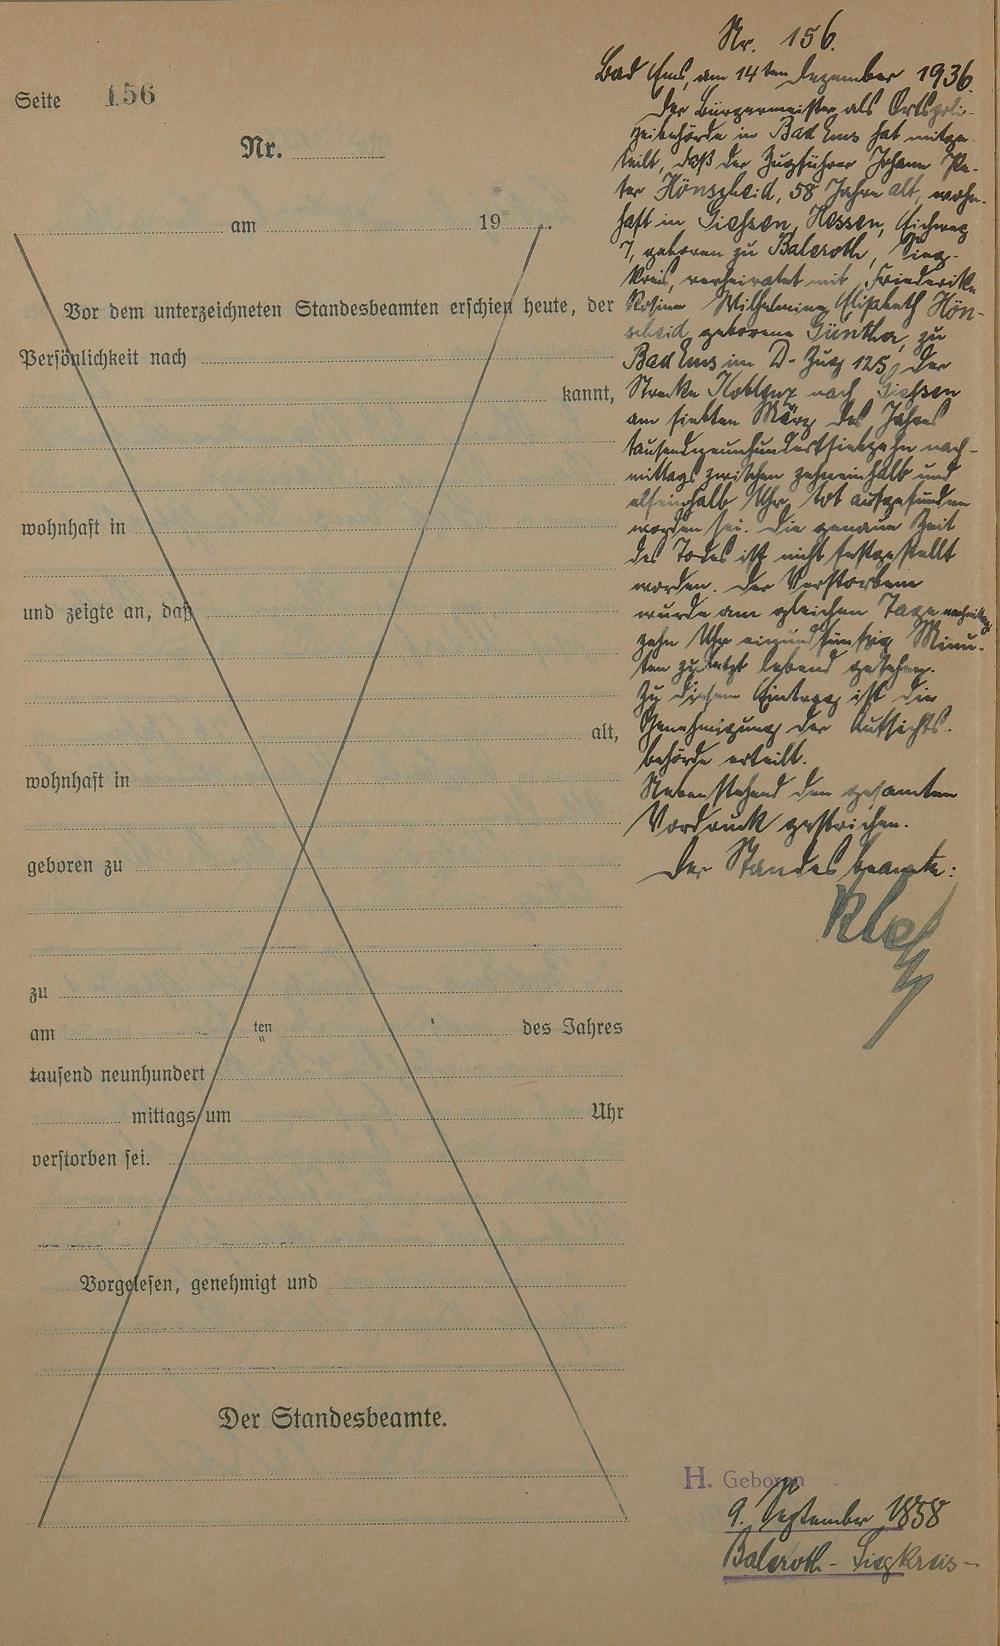 Seite 156
Nr.
am 19
Vor dem unterzeichneten Standesbeamten erschien heute, der
Persönlichkeit nach
kannt,
wohnhaft in
und zeigte an, daß
alt,
wohnhaft in
geboren zu
zu
am ten des Jahres
tausend neunhundert
mittags um Uhr
verstorben sei.
Vorgelesen, genehmigt und
Der Standesbeamte.
Nr. 156.
Bad Ems, am 14ten Dezember 1936.
Der Bürgermeister als Ortspoli-
zeibehörde in Bad Ems hat mitge-
teilt, daß der Zugführer Johann Pe-
ter Hönscheid, 58 Jahre alt, wohn-
haft in Giessen, Hessen, Eichweg
7, geboren zu Baleroth, Sieg-
kreis, verheiratet mit Friederike
Rosine Wilhelmine Elisabeth Hön-
scheid geborene Günther, zu
Bad Ems im D-Zug 125, der
Strecke Koblenz nach Giessen
am siebten März des Jahres
tausendneunhundertsiebzehn nach-
mittags zwischen zehneinhalb und
elfeinhalb Uhr, tot aufgefunden
worden sei. Die genaue Zeit
des Todes ist nicht festgestellt
worden. Der Verstorbene
wurde am gleichen Tage nachmittags
zehn Uhr einundfünfzig Minu-
ten zuletzt lebend gesehen.
Zu diesem Eintrag ist die
Genehmigung der Aufsichts-
behörde erteilt.
Nebenstehend den gesamten
Vordruck gestrichen.
Der Standesbeamte:
H. Geboren
9. September 1858
Baleroth - Siegkreis -